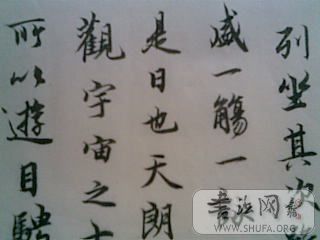 列坐其次
咸一觴一
是日也天朗
觀宇宙之大
所以遊目騁
書法网
WWW.SHUFA.ORG